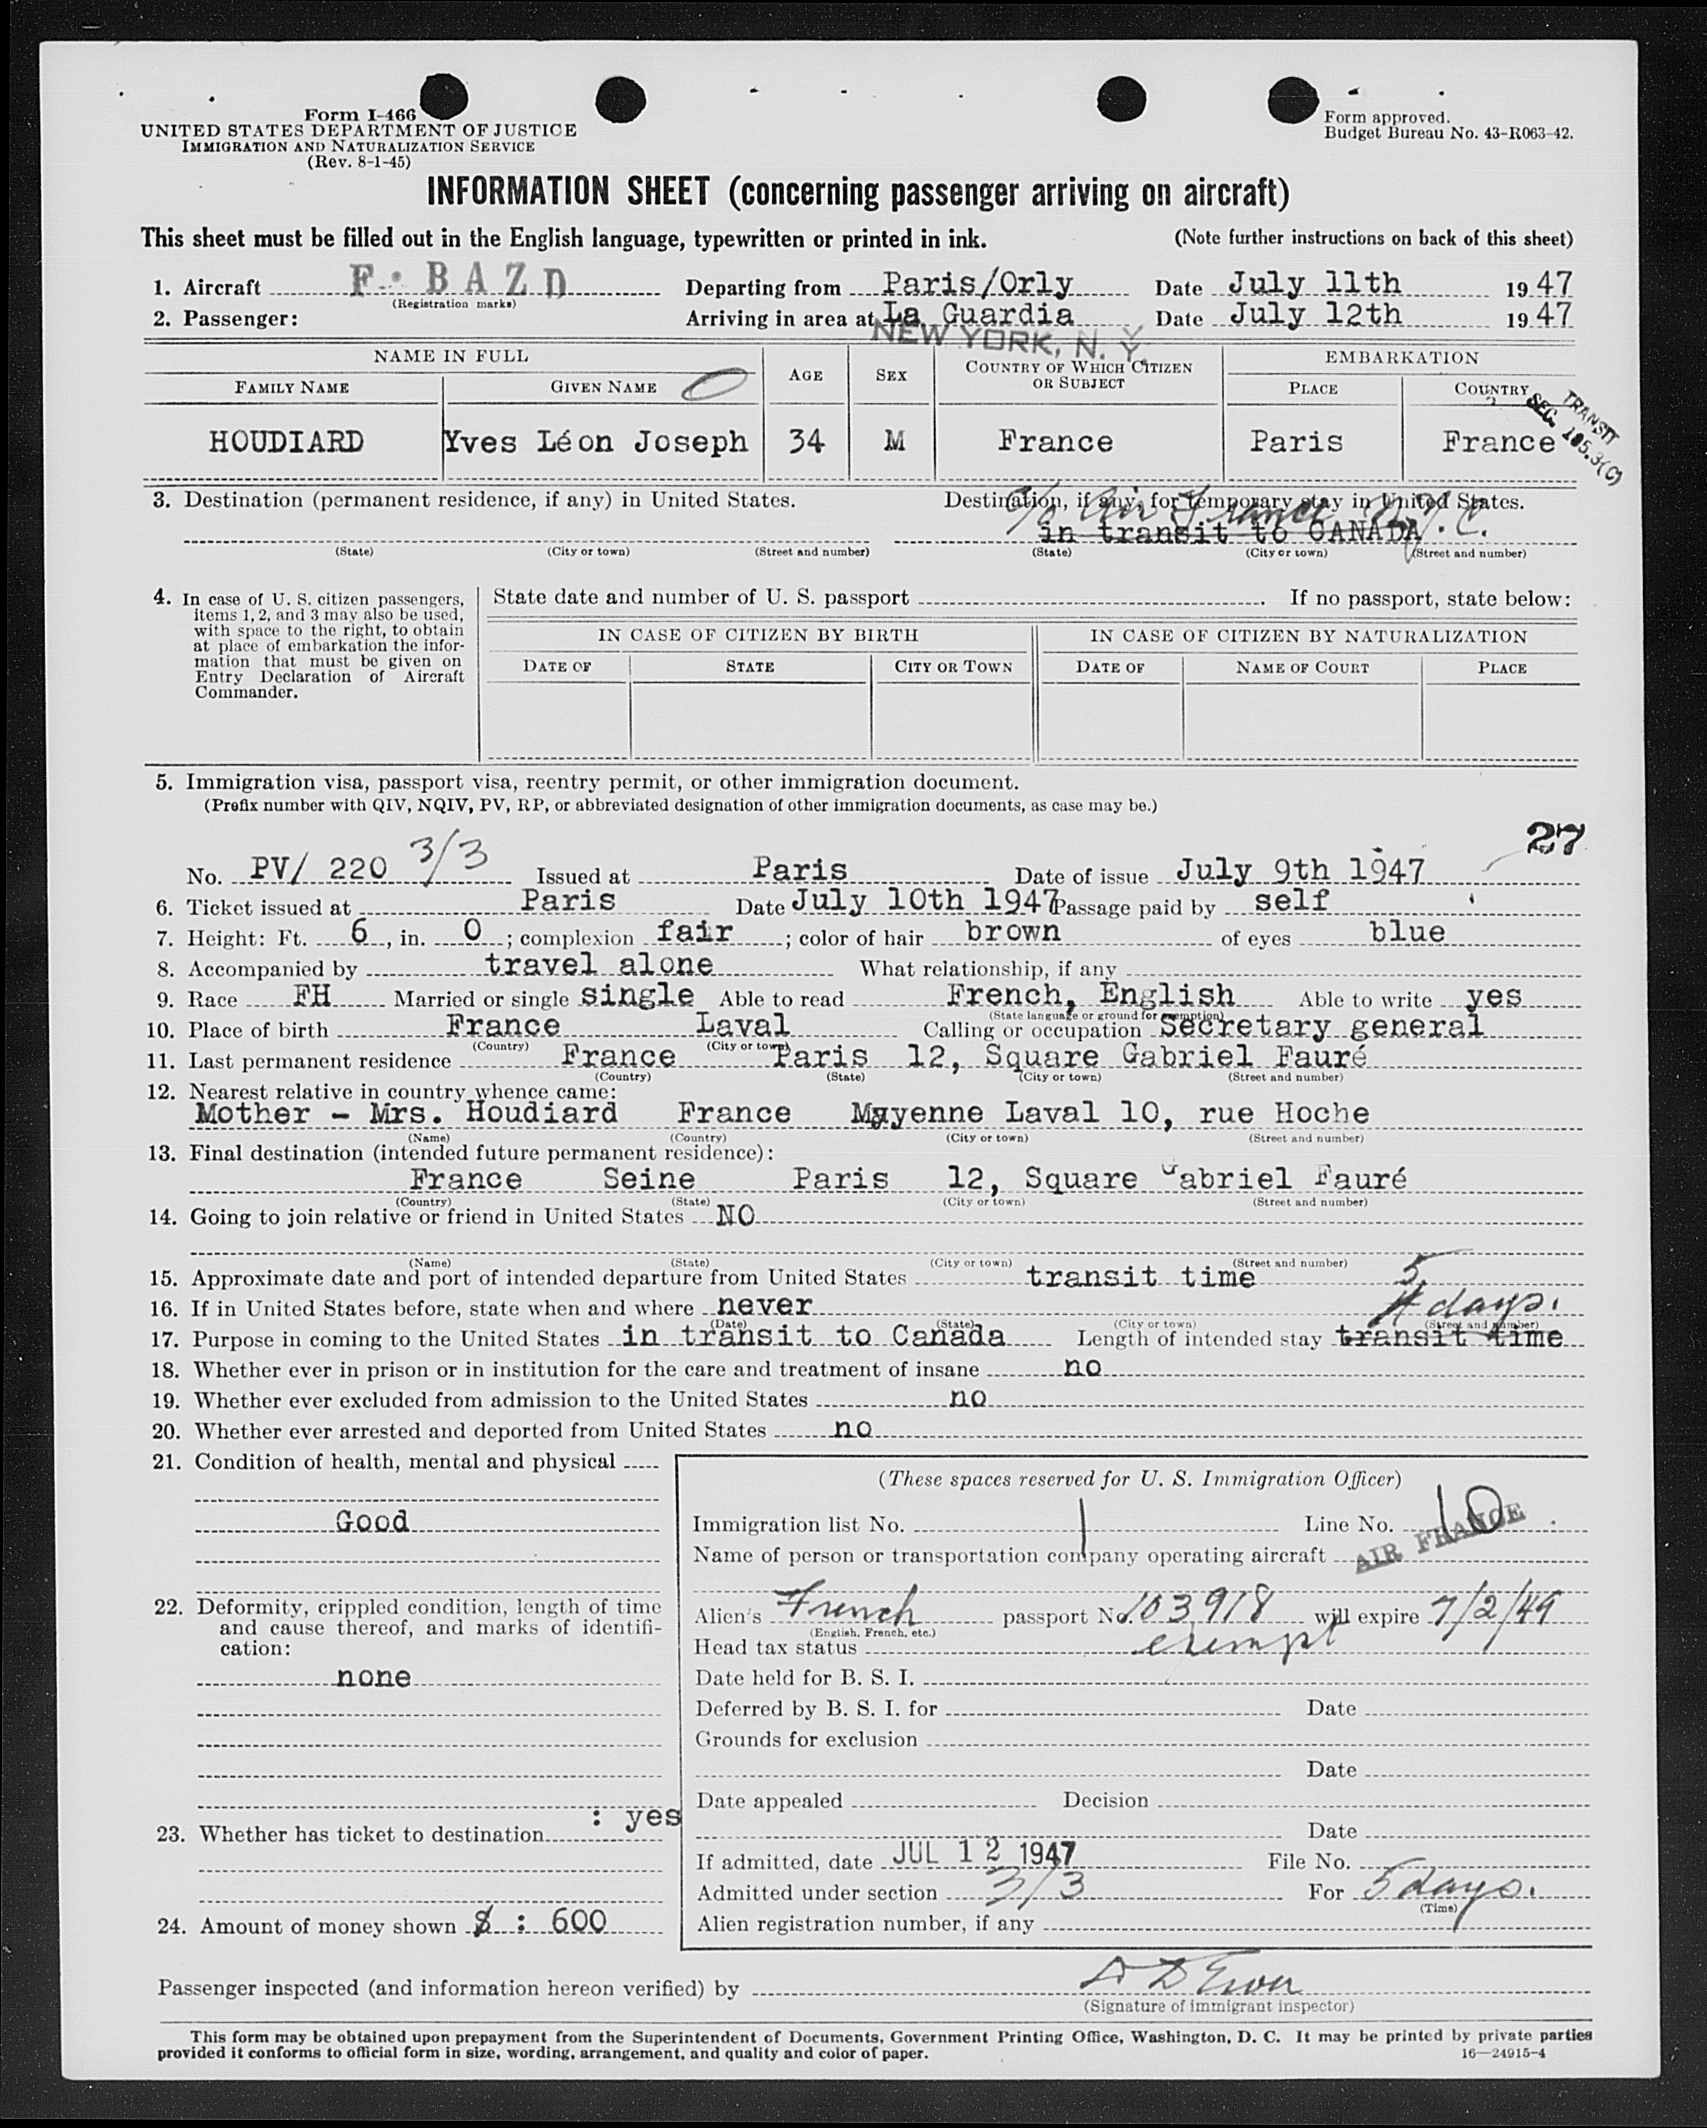 Form I-466
UNITED STATES DEPARTMENT OF JUSTICE
IMMIGRATION AND NATURALIZATION SERVICE
(Rev. 8-1-45)
Form approved.
Budget Bureau No. 43-R063-42.
INFORMATION SHEET (concerning passenger arriving on aircraft)
This sheet must be filled out in the English language, typewritten or printed in ink. (Note further instructions on back of this sheet)
1. Aircraft F. BAZD Departing from Paris/Orly Date July 11th 1947
(Registration marks)
2. Passenger: Arriving in area at La Guardia Date July 12th 1947
NEW YORK, N. Y.
NAME IN FULL AGE SEX COUNTRY OF WHICH CITIZEN OR SUBJECT EMBARKATION
FAMILY NAME GIVEN NAME PLACE COUNTRY
TRANSIT
SEC. 105.3(C)
HOUDIARD Yves Léon Joseph 34 M France Paris France
3. Destination (permanent residence, if any) in United States. Destination, if any, for temporary stay in United States.
c/o Air France N.Y.C.
in transit to CANADA
(State) (City or town) (Street and number) (State) (City or town) (Street and number)
4. In case of U. S. citizen passengers, items 1, 2, and 3 may also be used, with space to the right, to obtain at place of embarkation the information that must be given on Entry Declaration of Aircraft Commander.
State date and number of U. S. passport . If no passport, state below:
IN CASE OF CITIZEN BY BIRTH IN CASE OF CITIZEN BY NATURALIZATION
DATE OF STATE CITY OR TOWN DATE OF NAME OF COURT PLACE
5. Immigration visa, passport visa, reentry permit, or other immigration document.
(Prefix number with QIV, NQIV, PV, RP, or abbreviated designation of other immigration documents, as case may be.)
27
No. PV/ 220 3/3 Issued at Paris Date of issue July 9th 1947
6. Ticket issued at Paris Date July 10th 1947 Passage paid by self
7. Height: Ft. 6, in. 0; complexion fair; color of hair brown of eyes blue
8. Accompanied by travel alone What relationship, if any
9. Race FH Married or single single Able to read French, English Able to write yes
(State language or ground for exemption)
10. Place of birth France Laval Calling or occupation Secretary general
(Country) (City or town)
11. Last permanent residence France Paris 12, Square Gabriel Fauré
(Country) (State) (City or town) (Street and number)
12. Nearest relative in country whence came:
Mother - Mrs. Houdiard France Mayenne Laval 10, rue Hoche
(Name) (Country) (City or town) (Street and number)
13. Final destination (intended future permanent residence):
France Seine Paris 12, Square Gabriel Fauré
(Country) (State) (City or town) (Street and number)
14. Going to join relative or friend in United States NO
(Name) (State) (City or town) (Street and number)
15. Approximate date and port of intended departure from United States transit time 5
16. If in United States before, state when and where never days.
(Date) (State) (City or town) (Street and number)
17. Purpose in coming to the United States in transit to Canada Length of intended stay transit time
18. Whether ever in prison or in institution for the care and treatment of insane no
19. Whether ever excluded from admission to the United States no
20. Whether ever arrested and deported from United States no
21. Condition of health, mental and physical
Good
22. Deformity, crippled condition, length of time and cause thereof, and marks of identification:
none
23. Whether has ticket to destination : yes
24. Amount of money shown $ : 600
(These spaces reserved for U. S. Immigration Officer)
Immigration list No. 1 Line No. 10
Name of person or transportation company operating aircraft AIR FRANCE
Alien's French passport No. 103918 will expire 7/2/49
(English, French, etc.)
Head tax status exempt
Date held for B. S. I.
Deferred by B. S. I. for Date
Grounds for exclusion
Date
Date appealed Decision
Date
If admitted, date JUL 12 1947 File No.
Admitted under section 3/3 For 5 days.
(Time)
Alien registration number, if any
Passenger inspected (and information hereon verified) by
(Signature of immigrant inspector)
This form may be obtained upon prepayment from the Superintendent of Documents, Government Printing Office, Washington, D. C. It may be printed by private parties
provided it conforms to official form in size, wording, arrangement, and quality and color of paper. 16—24915-4